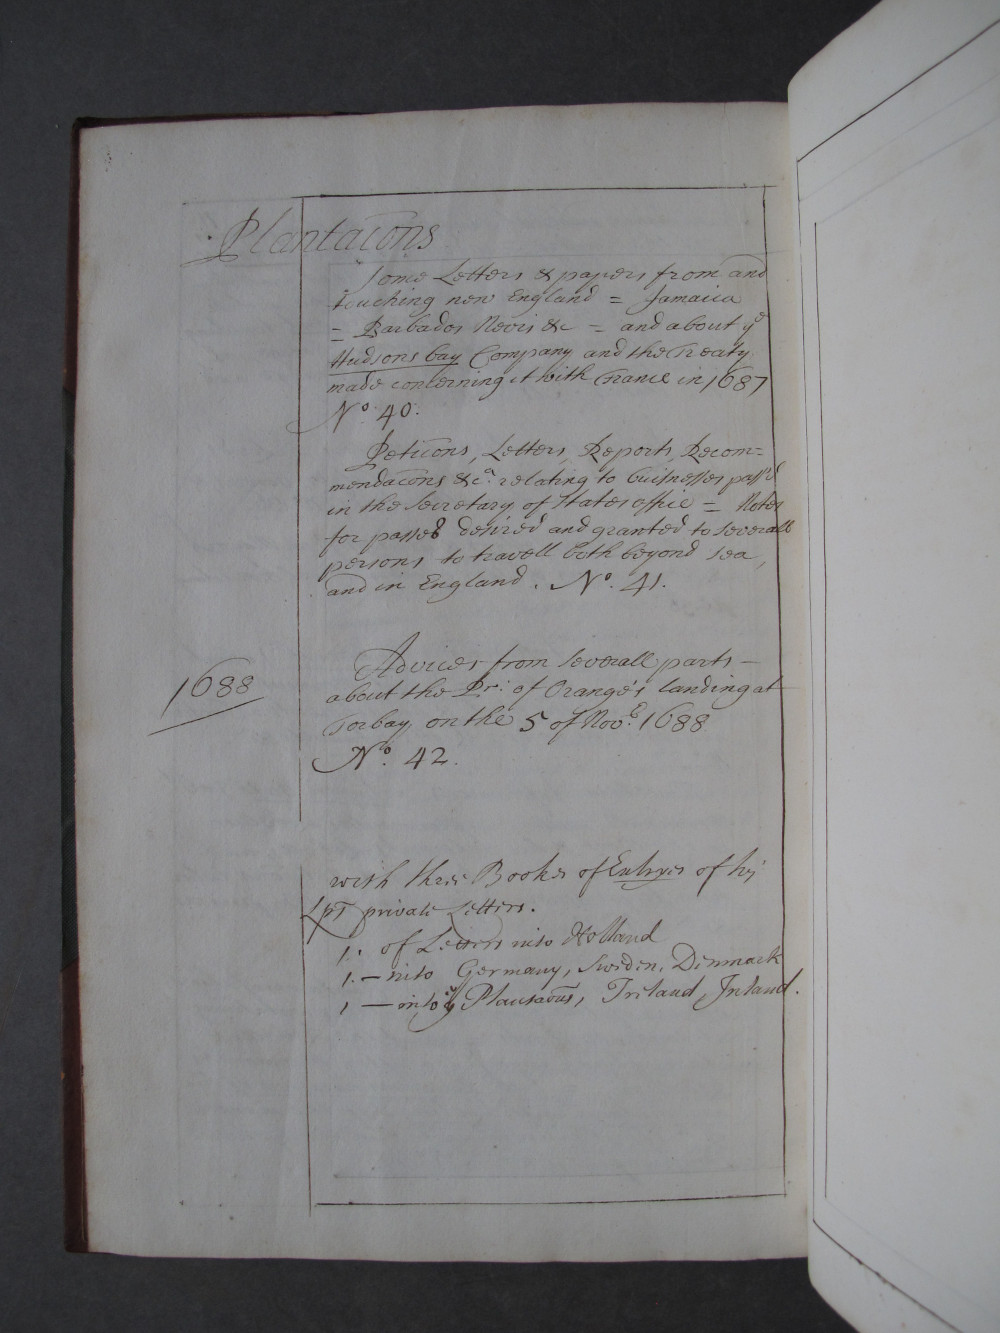 Plantac̃ons
Some Letters & papers from and
touching new England = Jamaica
= Barbados Nevis &c = and about yᵉ
Hudsons bay Company and the Treaty
made concerning it with France in 1687
Nº. 40.
Petic̃ons, Letters, Reports, Recom=
mendac̃ons &cᵃ. relating to buisnesses pass'd
in the Secretary of States office = Notes
for passes desired and granted to severall
persons to travell both beyond sea,
and in England. Nº. 41.
1688
Advices from severall parts –
about the Pr: of Orange's landing at
Torbay, on the 5 of Novᵇ. 1688
Nº. 42.
with three Bookes of Entryes of his
Lpᵖ private Letters.
1. of Letters into Holland
1. – into Germany, Sweden, Denmark
1 — into yᵉ Plantac̃ons, Ireland, Inland.